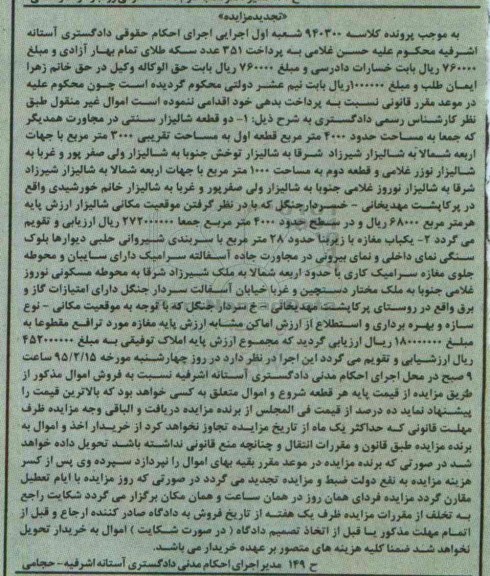 «تجدیدمزایده»
به موجب پرونده کلاسه ۹۴۰۳۰۰ شعبه اول اجرایی اجرای احکام حقوقی دادگستری آستانه
اشرفیه محکوم علیه حسن غلامی به پرداخت ۳۵۱ عدد سکه طلای تمام بهار آزادی و مبلغ
۷۶۰۰۰۰ ریال بابت خسارات دادرسی و مبلغ ۷۶۰۰۰۰ ریال بابت حق الوکاله وکیل در حق خانم زهرا
ایمان طلب و مبلغ ۱۰۰۰۰۰۰ریال بابت نیم عشر دولتی محکوم گردیده است چون محکوم علیه
در موعد مقرر قانونی نسبت به پرداخت بدهی خود اقدامی ننموده است اموال غیر منقول طبق
نظر کارشناس رسمی دادگستری به شرح ذیل: ۱- دو قطعه شالیزار سنتی در مجاورت همدیگر
که جمعا به مساحت حدود ۴۰۰۰ متر مربع قطعه اول به مساحت تقریبی ۳۰۰۰ متر مربع با جهات
اربعه شمالا به شالیزار شیرزاد شرقا به شالیزار توخش جنوبا به شالیزار ولی صفر پور و غربا به
شالیزار نوزر غلامی و قطعه دوم به مساحت ۱۰۰۰ متر مربع با جهات اربعه شمالا به شالیزار شیرزاد
شرقا به شالیزار نوروز غلامی جنوبا به شالیزار ولی صفرپور و غربا به شالیزار خانم خورشیدی واقع
در پرکاپشت مهدیخانی - خسردارجنگل که با در نظر گرفتن موقعیت مکانی شالیزار ارزش پایه
هرمتر مربع ۶۸۰۰۰ ریال و در سطح حدود ۴۰۰۰ متر مربع جمعا ۲۷۲۰۰۰۰۰۰ ریال ارزیابی و تقویم
می گردد ۲- یکباب مغازه با زیربنا حدود ۲۸ متر مربع با سربندی شیروانی حلبی دیوارها بلوک
سنگی نمای داخلی و نمای بیرونی در مجاورت جاده آسفالته سرامیک دارای سایبان و محوطه
جلوی مغازه سرامیک کاری با حدود اربعه شمالا به ملک شیرزاد شرقا به محوطه مسکونی نوروز
غلامی جنوبا به ملک مختار دستچین و غربا خیابان آسفالت سردار جنگل دارای امتیازات گاز و
برق واقع در روستای پرکاپشت مهدیخانی - خ سردار جنگل که با توجه به موقعیت مکانی - نوع
سازه و بهره برداری و استطلاع از ارزش اماکن مشابه ارزش پایه مغازه مورد ترافع مقطوعا به
مبلغ ۱۸۰۰۰۰۰۰۰ ریال ارزیابی گردید که مجموع ارزش پایه املاک توقیفی به مبلغ ۴۵۲۰۰۰۰۰۰
ریال ارزشیابی و تقویم می گردد این اجرا در نظر دارد در روز چهارشنبه مورخه ۹۵/۲/۱۵ ساعت
۹ صبح در محل اجرای احکام مدنی دادگستری آستانه اشرفیه نسبت به فروش اموال مذکور از
طریق مزایده از قیمت پایه هر قطعه شروع و اموال متعلق به کسی خواهد بود که بالاترین قیمت را
پیشنهاد نماید ده درصد از قیمت فی المجلس از برنده مزایده دریافت و الباقی وجه مزایده ظرف
مهلت قانونی که حداکثر یک ماه از تاریخ مزایده تجاوز نخواهد کرد از خریدار اخذ و اموال به
برنده مزایده طبق قانون و مقررات انتقال و چنانچه منع قانونی نداشته باشد تحویل داده خواهد
شد در صورتی که برنده مزایده در موعد مقرر بقیه بهای اموال را نپردازد سپرده وی پس از کسر
هزینه مزایده به نفع دولت ضبط و مزایده تجدید می گردد در صورتی که روز مزایده با ایام تعطیل
مقارن گردد مزایده فردای همان روز در همان ساعت و همان مکان برگزار می گردد شکایت راجع
به تخلف از مقررات مزایده ظرف یک هفته از تاریخ فروش به دادگاه صادر کننده ارجاع و قبل از
اتمام مهلت مذکور یا قبل از اتخاذ تصمیم دادگاه ( در صورت شکایت ) اموال به خریدار تحویل
نخواهد شد ضمنا کلیه هزینه های متصور بر عهده خریدار می باشد.
ح ۱۴۹ مدیر اجرای احکام مدنی دادگستری آستانه اشرفیه- حجامی